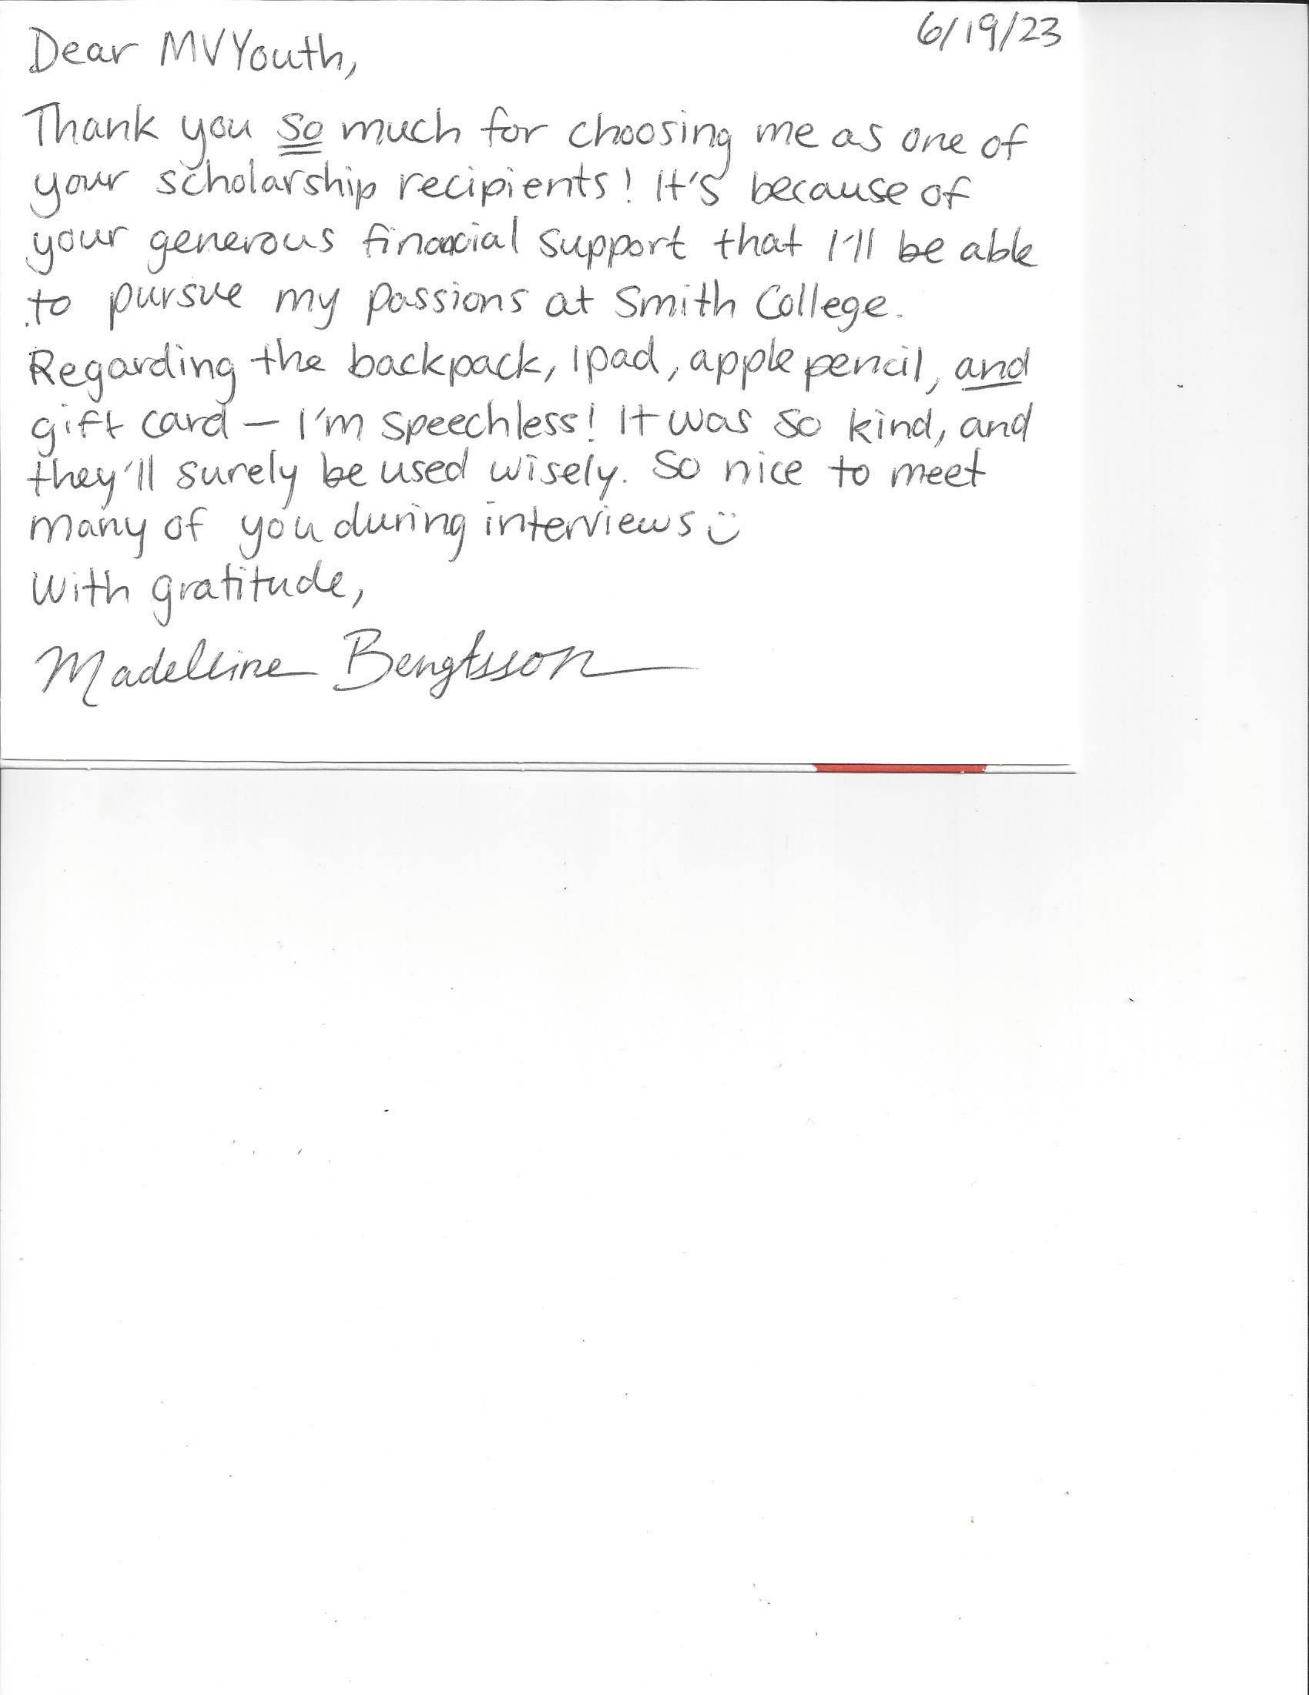 6/19/23
Dear MVYouth,
Thank you so much for choosing me as one of
your scholarship recipients! It's because of
your generous financial support that I'll be able
to pursue my passions at Smith College.
Regarding the backpack, ipad, apple pencil, and
gift card – I'm speechless! It was so kind, and
they'll surely be used wisely. So nice to meet
many of you during interviews ☺
With gratitude,
Madeleine Bengtsson